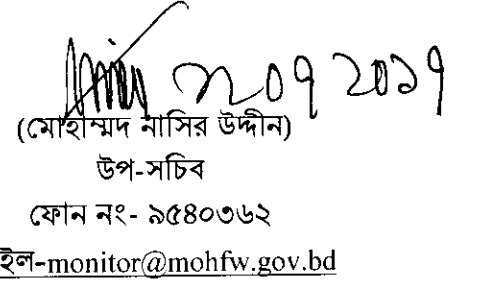 (মোহাম্মদ নাসির উদ্দীন)
উপ-সচিব
ফোন নং- ৯৫৪০৩৬২
ইল-monitor@mohfw.gov.bd